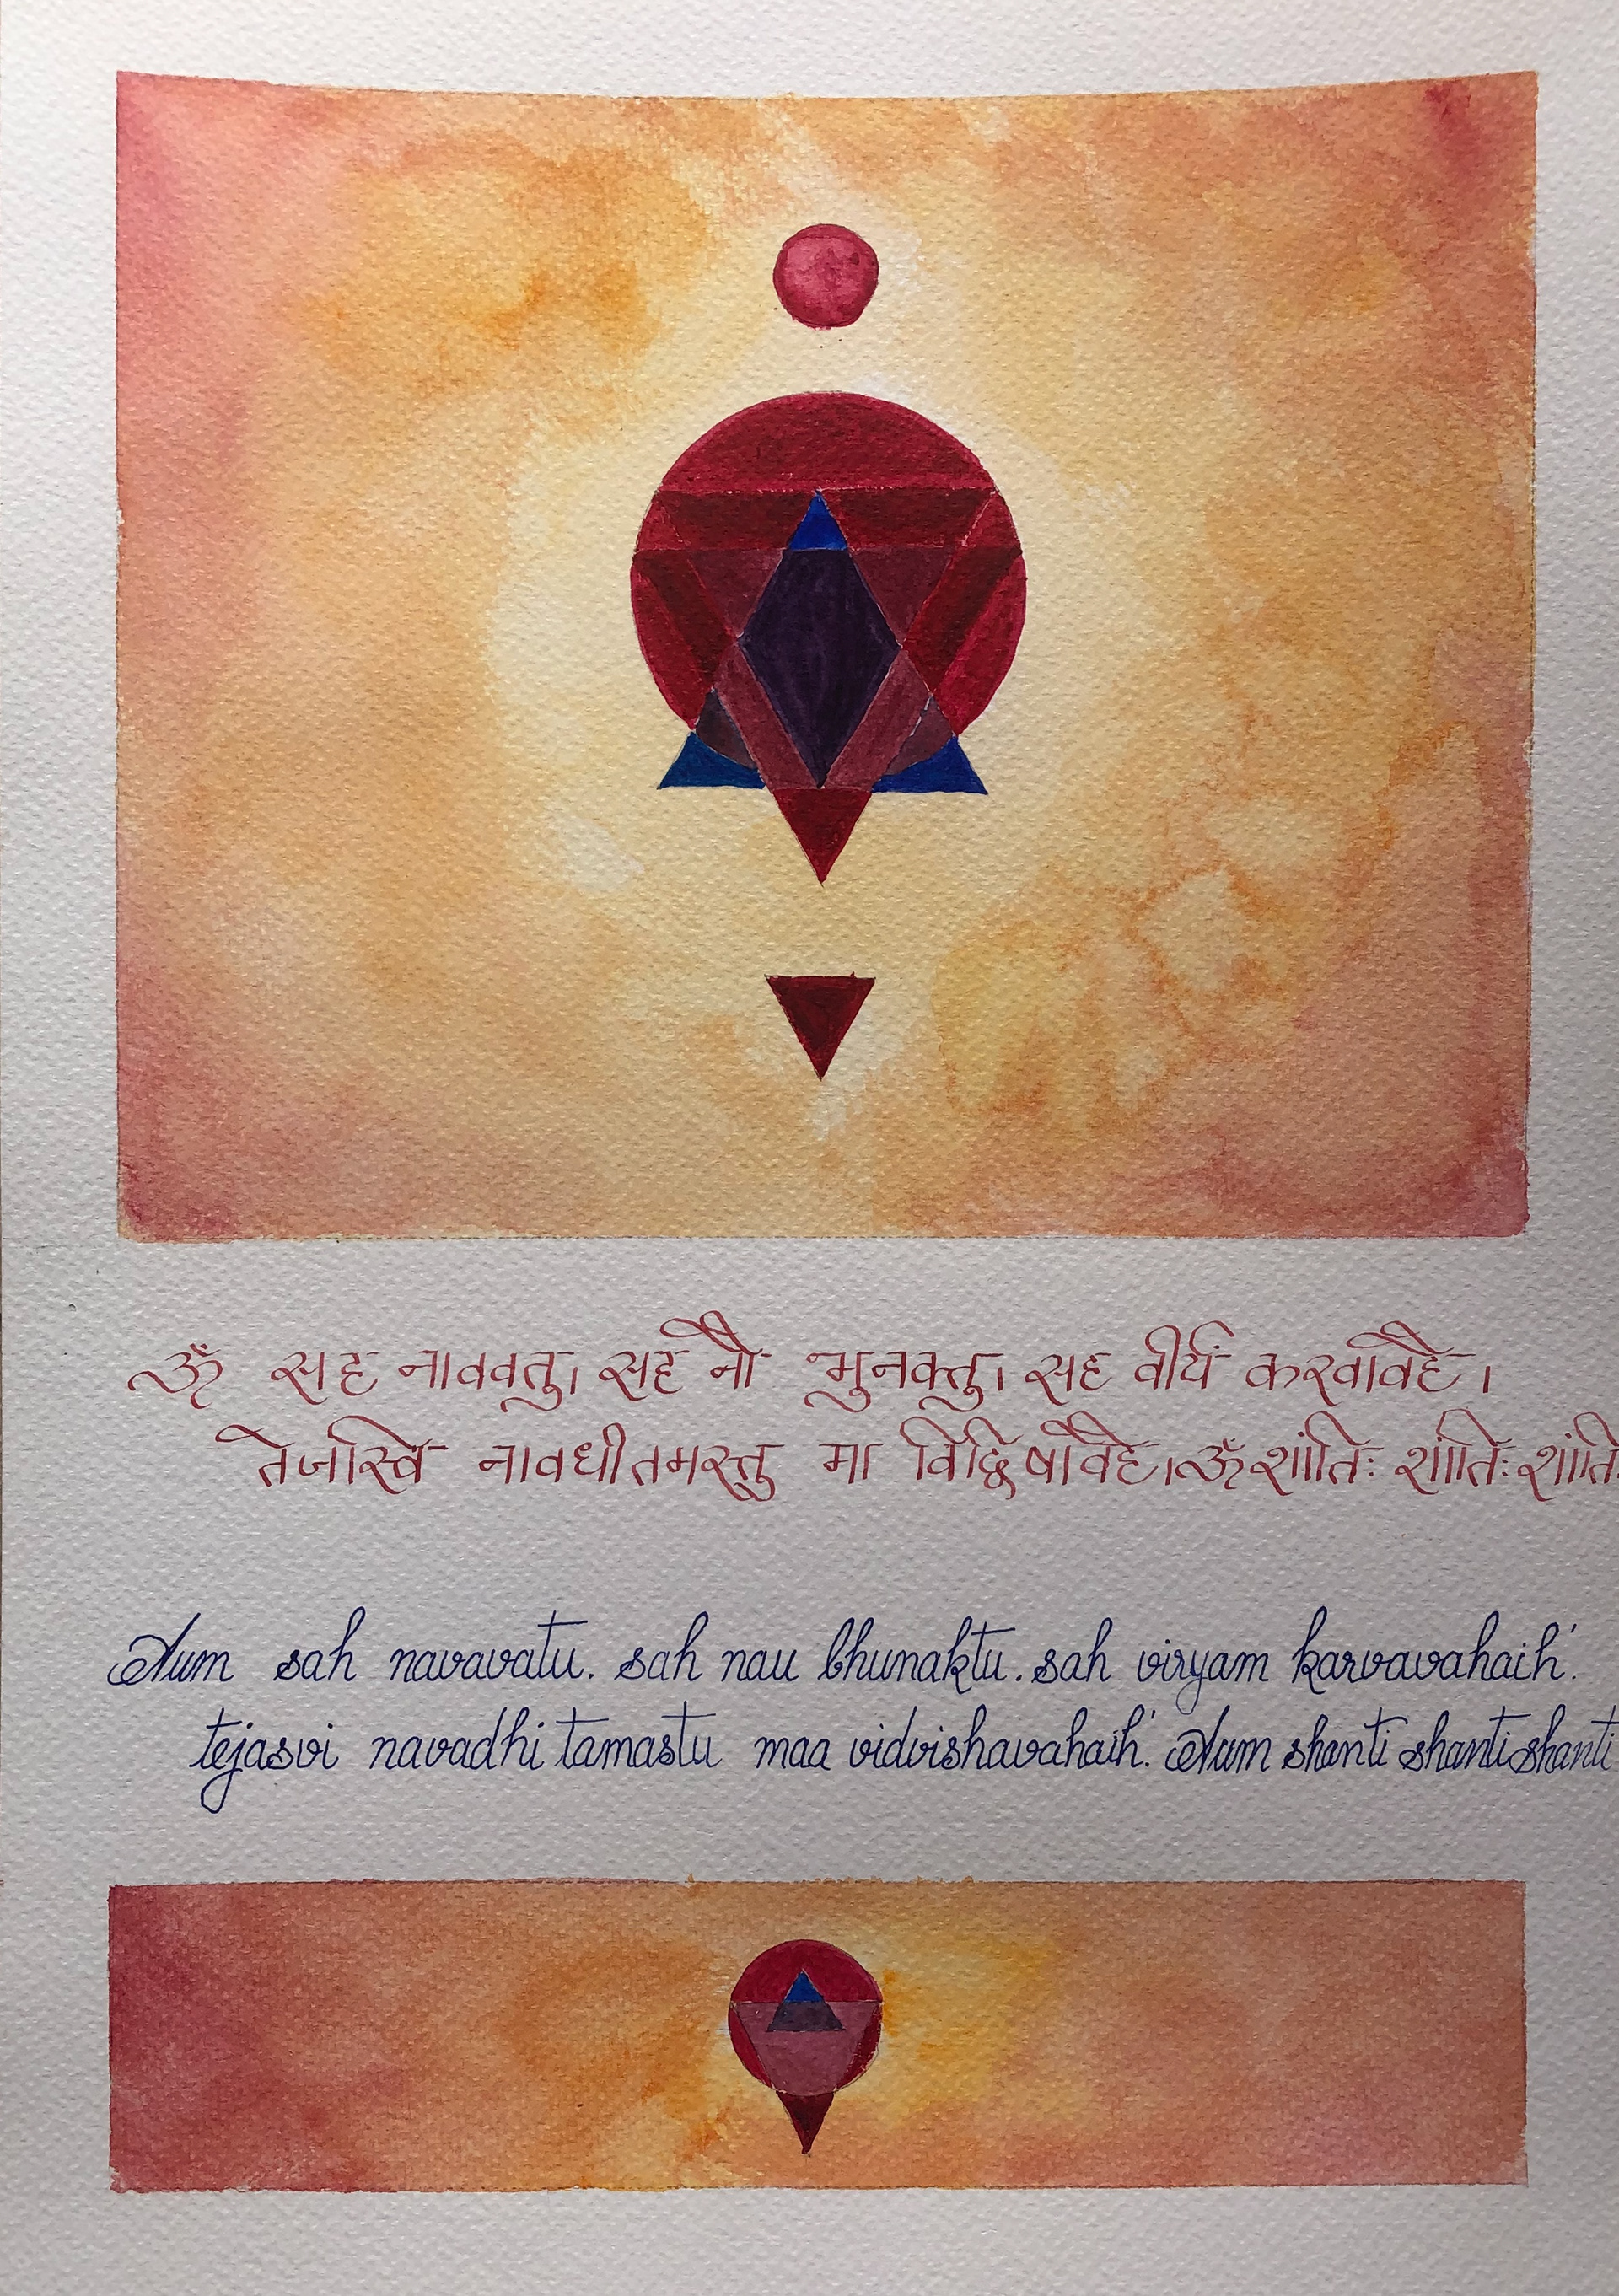 ॐ सह नाववतु। सह नौ भुनक्तु। सह वीर्यं करवावहै।
तेजस्वि नावधीतमस्तु मा विद्विषावहै। ॐ शांतिः शांतिः शांतिः
Aum sah navavatu. sah nau bhunaktu. sah viryam karvavahaih'.
tejasvi navadhi tamastu maa vidvishavahaih'. Aum shanti shanti shanti